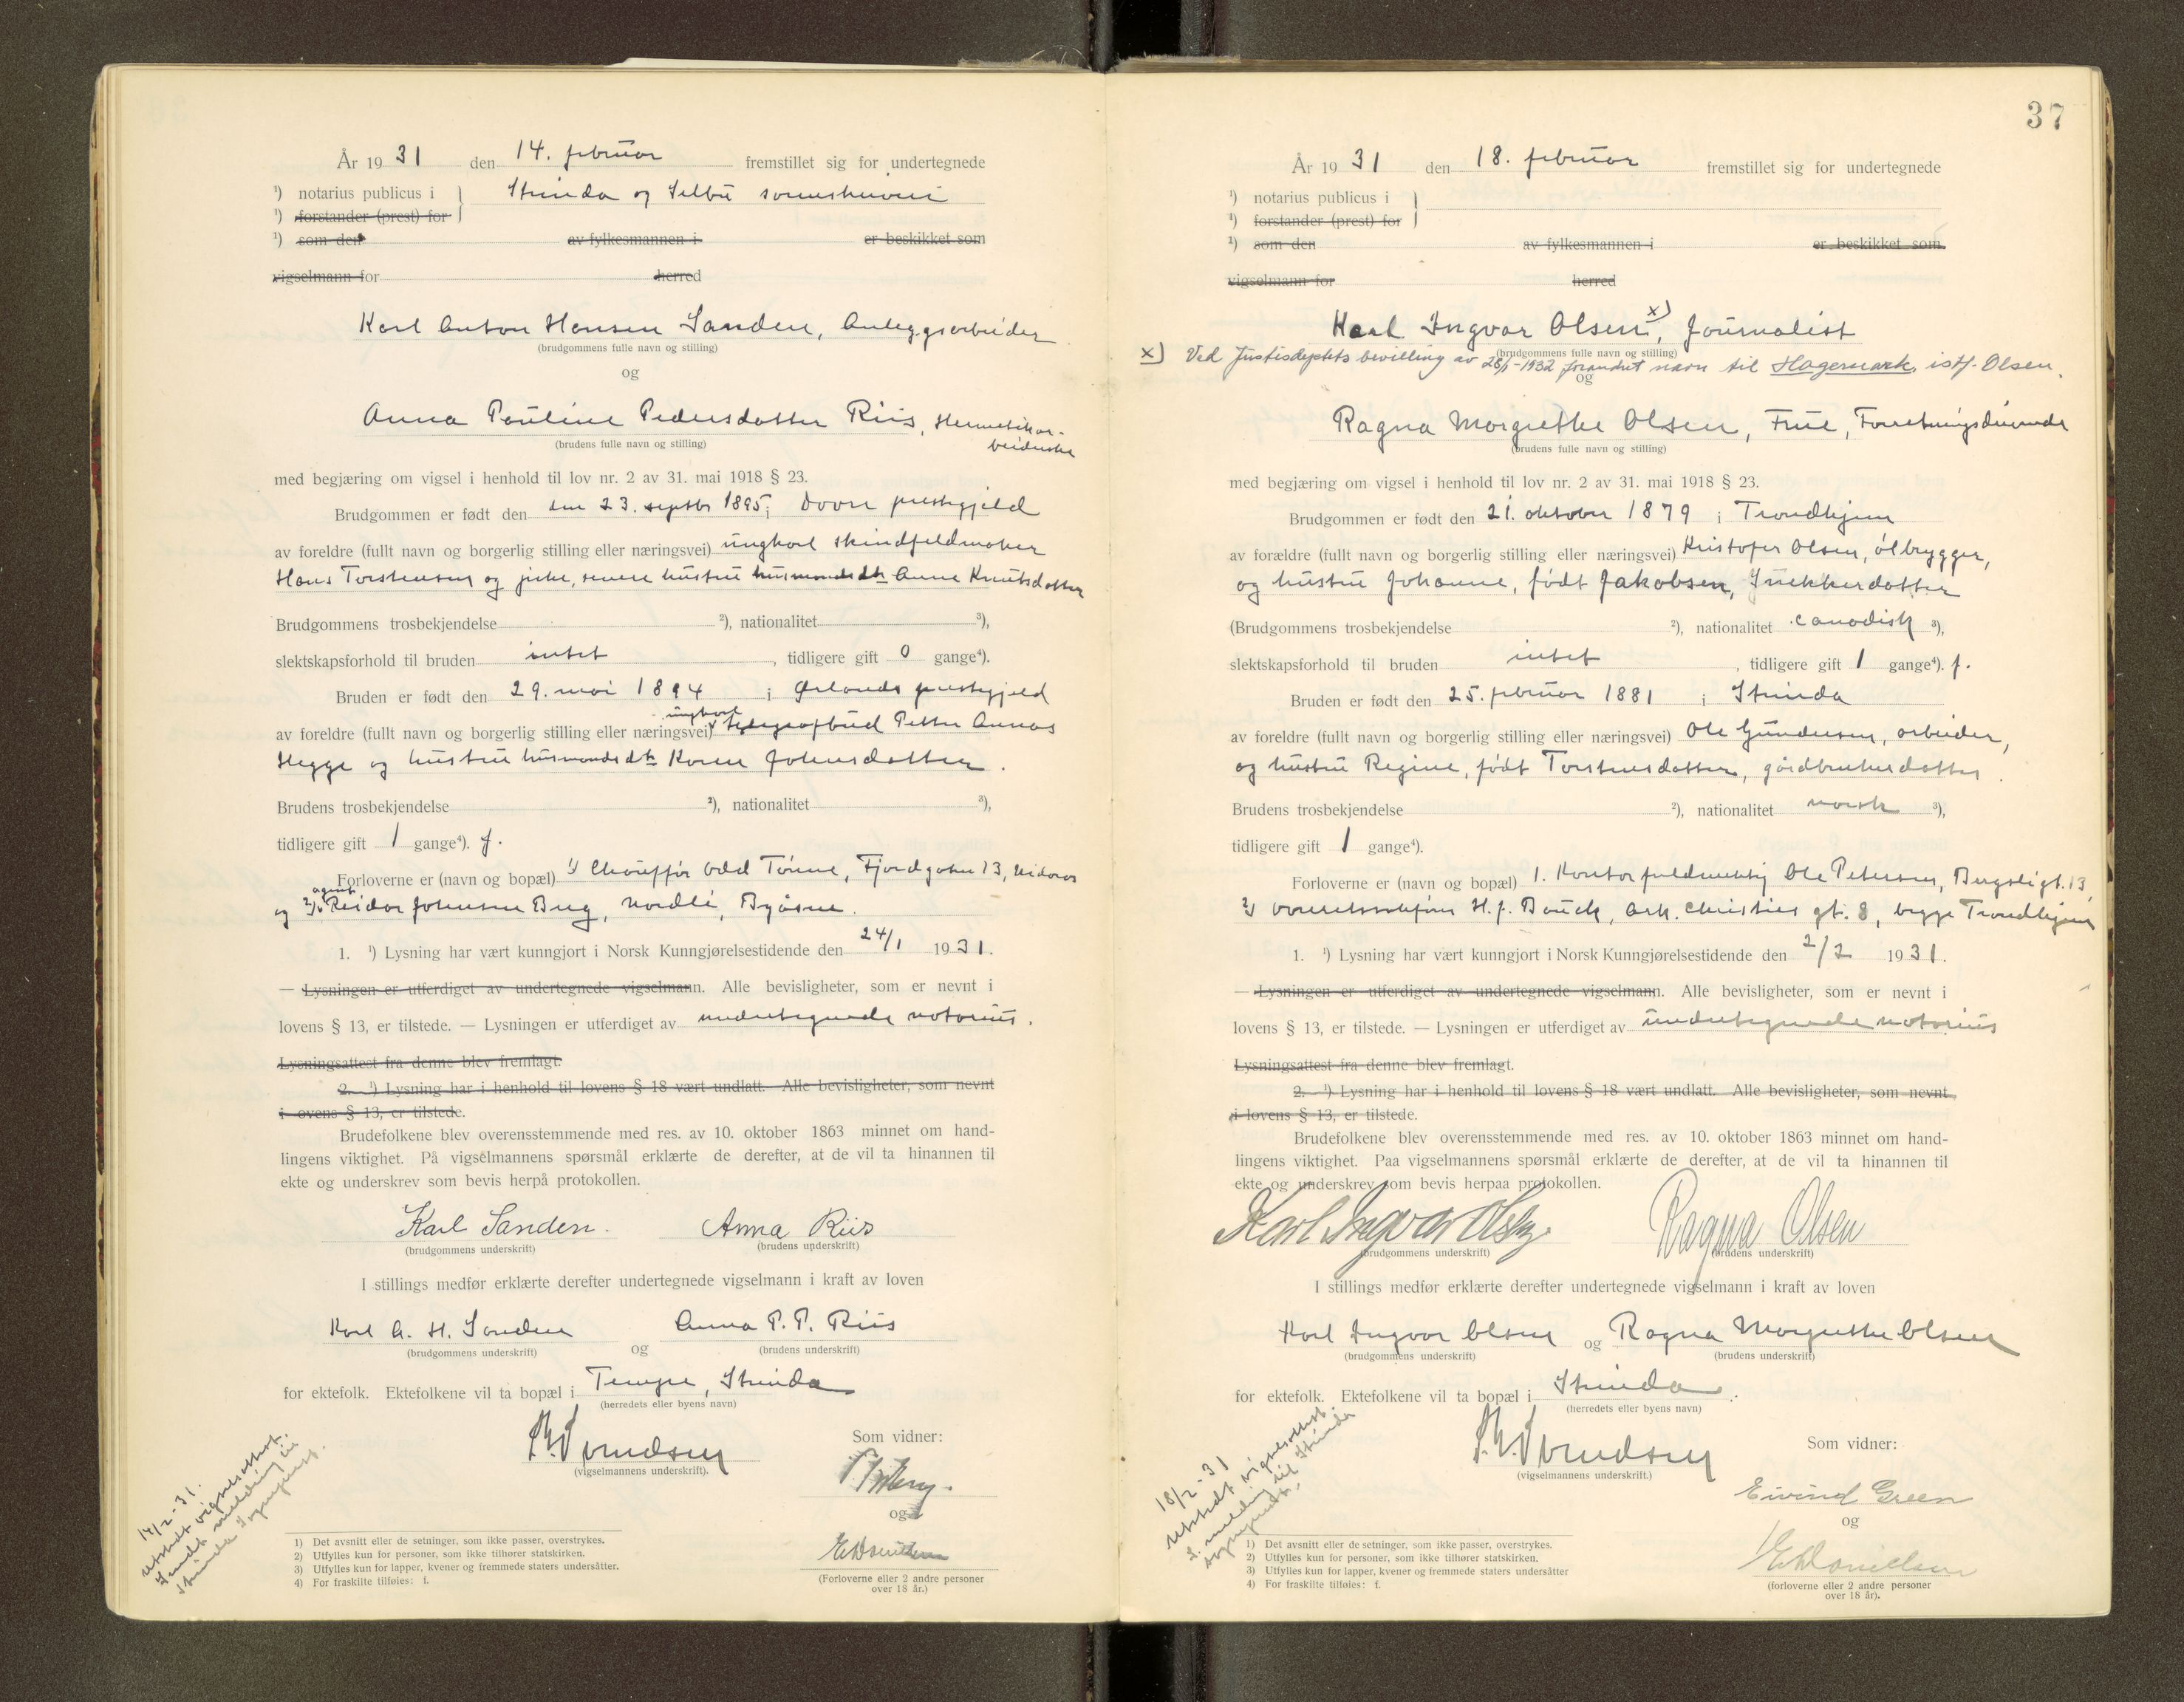 År 1931 den 14. februar fremstillet sig for undertegnede
¹) notarius publicus i } Strinda og Selbu sorenskriveri
¹) forstander (prest) for
¹) som den av fylkesmannen i er beskikket som
vigselmann for herred
Karl Anton Hansen Sanden, Anleggsarbeider
(brudgommens fulle navn og stilling)
og
Anna Pauline Pedersdatter Riis, Hermetikar-
beiderske
(brudens fulle navn og stilling)
med begjæring om vigsel i henhold til lov nr. 2 av 31. mai 1918 § 23.
Brudgommen er født den den 23. septbr 1895 i Dovre prestegjeld
av foreldre (fullt navn og borgerlig stilling eller næringsvei) ungkarl skindfeldmaker
Hans Torstensen og pike, senere hustru husmandsdtr Anne Knutsdatter
Brudgommens trosbekjendelse ²), nationalitet ³),
slektskapsforhold til bruden intet, tidligere gift 0 gange⁴).
Bruden er født den 29. mai 1894 i Ørlands prestegjeld
ungkarl
av foreldre (fullt navn og borgerlig stilling eller næringsvei) Petter Annas
Hegge og hustru husmandsdtr Karen Johnsdatter.
Brudens trosbekjendelse ²), nationalitet ³),
tidligere gift 1 gange⁴). f.
Forloverne er (navn og bopæl) 1) Chauffør Odd Tørne, Fjordgaten 13, Nidaros
agent
og 2) Reidar Johansen Bug, Nordli, Byåsen.
1. ¹) Lysning har vært kunngjort i Norsk Kunngjørelsestidende den 24/1 1931.
— Lysningen er utferdiget av undertegnede vigselmann. Alle bevisligheter, som er nevnt i
lovens § 13, er tilstede. — Lysningen er utferdiget av undertegnede notarius.
Lysningsattest fra denne blev fremlagt.
2. ¹) Lysning har i henhold til lovens § 18 vært undlatt. Alle bevisligheter, som nevnt
i lovens § 13, er tilstede.
Brudefolkene blev overensstemmende med res. av 10. oktober 1863 minnet om hand-
lingens viktighet. På vigselmannens spørsmål erklærte de derefter, at de vil ta hinannen til
ekte og underskrev som bevis herpå protokollen.
Karl Sanden. Anna Riis
(brudgommens underskrift) (brudens underskrift)
I stillings medfør erklærte derefter undertegnede vigselmann i kraft av loven
Karl A. H. Sanden og Anna P. P. Riis
(brudgommens underskrift) (brudens underskrift)
for ektefolk. Ektefolkene vil ta bopæl i Tempe, Strinda
(herredets eller byens navn)
(vigselmannens underskrift).
Som vidner:
og
E Danielsen
(Forloverne eller 2 andre personer
over 18 år.)
14/2-31.
Utstedt vigselsattest.
Sendt melding til
Strinda sogneprest.
1) Det avsnitt eller de setninger, som ikke passer, overstrykes.
2) Utfylles kun for personer, som ikke tilhører statskirken.
3) Utfylles kun for lapper, kvener og fremmede staters undersåtter.
4) For fraskilte tilføies: f.
37
År 1931 den 18. februar fremstillet sig for undertegnede
¹) notarius publicus i }
¹) forstander (prest) for
¹) som den av fylkesmannen i er beskikket som
vigselmann for herred
Karl Ingvar Olsen x), Journalist
(brudgommens fulle navn og stilling)
x) Ved Justisdeptets bevilling av 28/1-1932 forandret navn til Hagemark, istf. Olsen.
og
Ragna Margrethe Olsen, Frue, Forretningsdrivende
(brudens fulle navn og stilling)
med begjæring om vigsel i henhold til lov nr. 2 av 31. mai 1918 § 23.
Brudgommen er født den 21. oktober 1879 i Trondhjem
av forældre (fullt navn og borgerlig stilling eller næringsvei) Kristofer Olsen, ølbrygger,
og hustru Johanne, født Jakobsen, Snekkerdatter
(Brudgommens trosbekjendelse ²), nationalitet canadisk ³),
slektskapsforhold til bruden intet, tidligere gift 1 gange⁴). f.
Bruden er født den 25. februar 1881 i Strinda
av foreldre (fullt navn og borgerlig stilling eller næringsvei) Ole Gundersen, arbeider,
og hustru Regine, født Torstensdatter, gårdbrukerdatter.
Brudens trosbekjendelse ²), nationalitet norsk ³),
tidligere gift 1 gange⁴).
Forloverne er (navn og bopæl) 1. Kontorfuldmektig Ole Petersen, Bugsligt. 13,
2) Overrettssakfører H. J. Bauck, Ark. Christies gt. 8, begge Trondhjem
1. ¹) Lysning har vært kunngjort i Norsk Kunngjørelsestidende den 2/2 1931.
— Lysningen er utferdiget av undertegnede vigselmann. Alle bevisligheter, som er nevnt i
lovens § 13, er tilstede. — Lysningen er utferdiget av undertegnede notarius
Lysningsattest fra denne blev fremlagt.
2. ¹) Lysning har i henhold til lovens § 18 vært undlatt. Alle bevisligheter, som nevnt
i lovens § 13, er tilstede.
Brudefolkene blev overensstemmende med res. av 10. oktober 1863 minnet om hand-
lingens viktighet. Paa vigselmannens spørsmål erklærte de derefter, at de vil ta hinannen til
ekte og underskrev som bevis herpaa protokollen.
Karl Ingvar Olsen Ragna Olsen
(brudgommens underskrift) (brudens underskrift)
I stillings medfør erklærte derefter undertegnede vigselmann i kraft av loven
Karl Ingvar Olsen og Ragna Margrethe Olsen
(brudgommens underskrift) (brudens underskrift)
for ektefolk. Ektefolkene vil ta bopæl i Strinda.
(herredets eller byens navn)
(vigselmannens underskrift.)
Som vidner:
Eivind Green
og
E Danielsen
(forloverne eller 2 andre personer
over 18 år).
18/2-31
Utstedt vigselsattest.
S. melding til Strinda
sogneprest.
1) Det avsnitt eller de setninger, som ikke passer, overstrykes.
2) Utfylles kun for personer, som ikke tilhører statskirken.
3) Utfylles kun for lapper, kvener og fremmede staters undersåtter
4) For fraskilte tilføies: f.